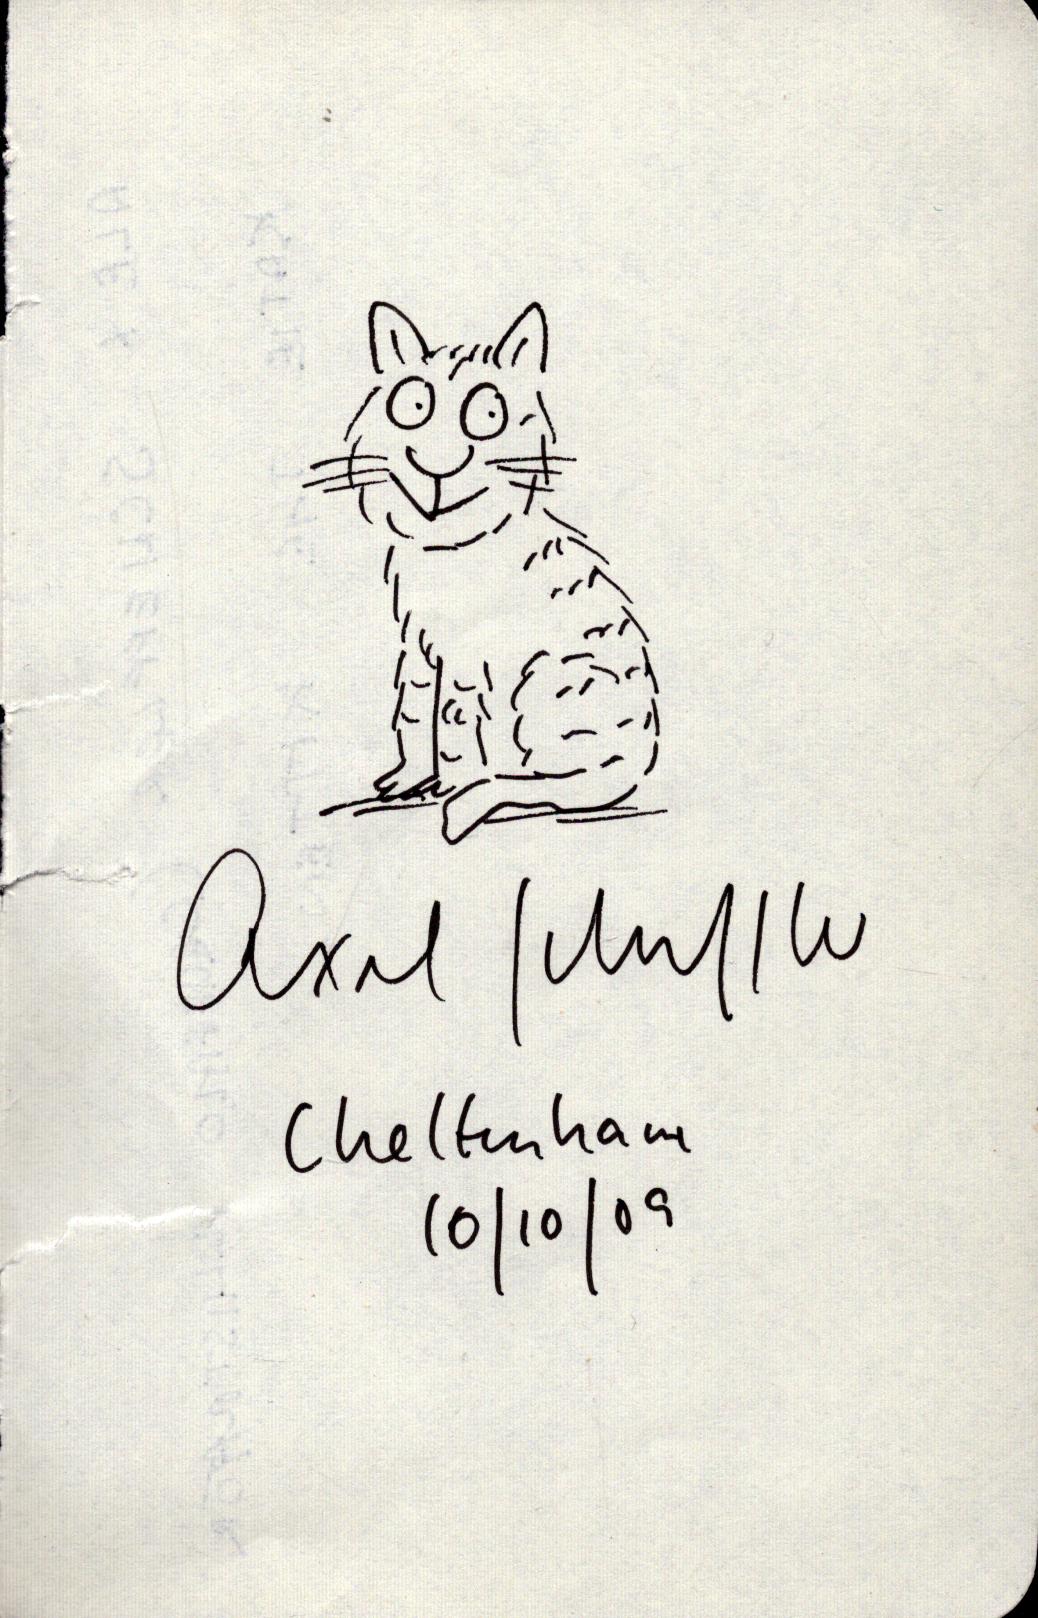 Axel Scheffler
Cheltenham
10/10/09